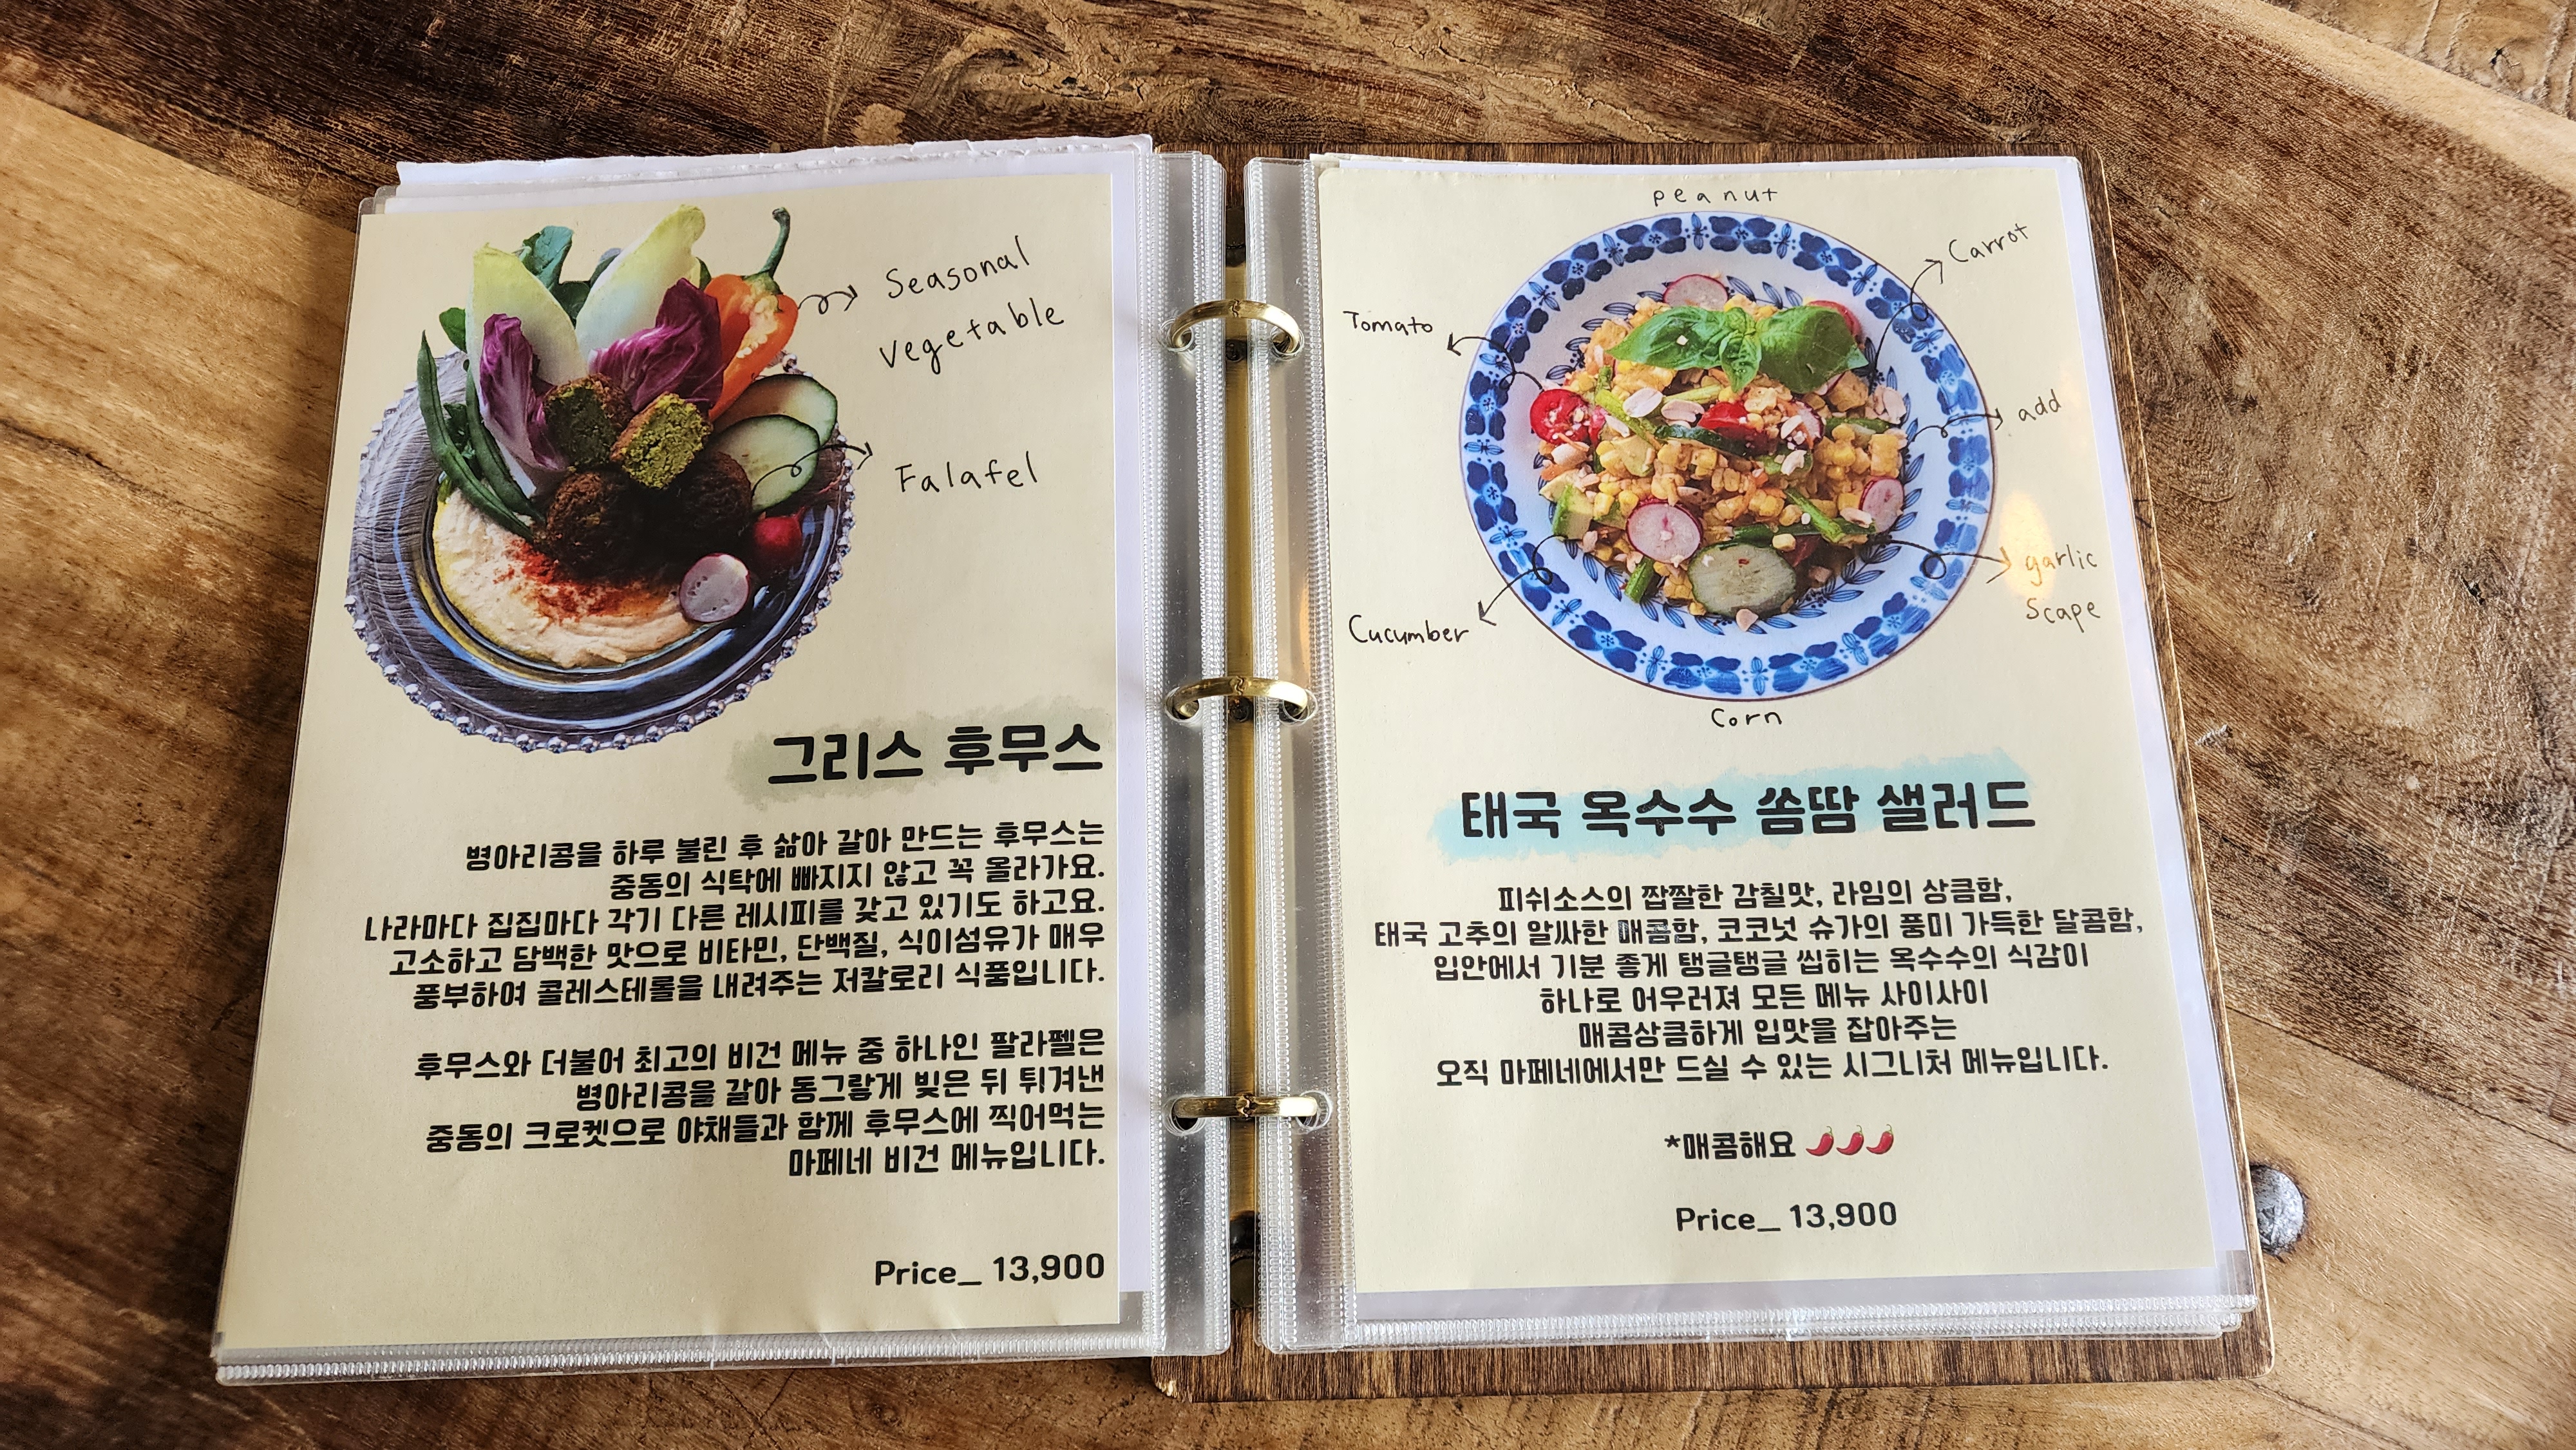 Seasonal
vegetable
Falafel
그리스 후무스
병아리콩을 하루 불린 후 삶아 갈아 만드는 후무스는
중동의 식탁에 빠지지 않고 꼭 올라가요.
나라마다 집집마다 각기 다른 레시피를 갖고 있기도 하고요.
고소하고 담백한 맛으로 비타민, 단백질, 식이섬유가 매우
풍부하여 콜레스테롤을 내려주는 저칼로리 식품입니다.
후무스와 더불어 최고의 비건 메뉴 중 하나인 팔라펠은
병아리콩을 갈아 동그랗게 빚은 뒤 튀겨낸
중동의 크로켓으로 야채들과 함께 후무스에 찍어먹는
마페네 비건 메뉴입니다.
Price_ 13,900
peanut
Carrot
Tomato
add
garlic
Scape
Cucumber
Corn
태국 옥수수 쏨땀 샐러드
피쉬소스의 짭짤한 감칠맛, 라임의 상큼함,
태국 고추의 알싸한 매콤함, 코코넛 슈가의 풍미 가득한 달콤함,
입안에서 기분 좋게 탱글탱글 씹히는 옥수수의 식감이
하나로 어우러져 모든 메뉴 사이사이
매콤상큼하게 입맛을 잡아주는
오직 마페네에서만 드실 수 있는 시그니처 메뉴입니다.
*매콤해요 🌶🌶🌶
Price_ 13,900